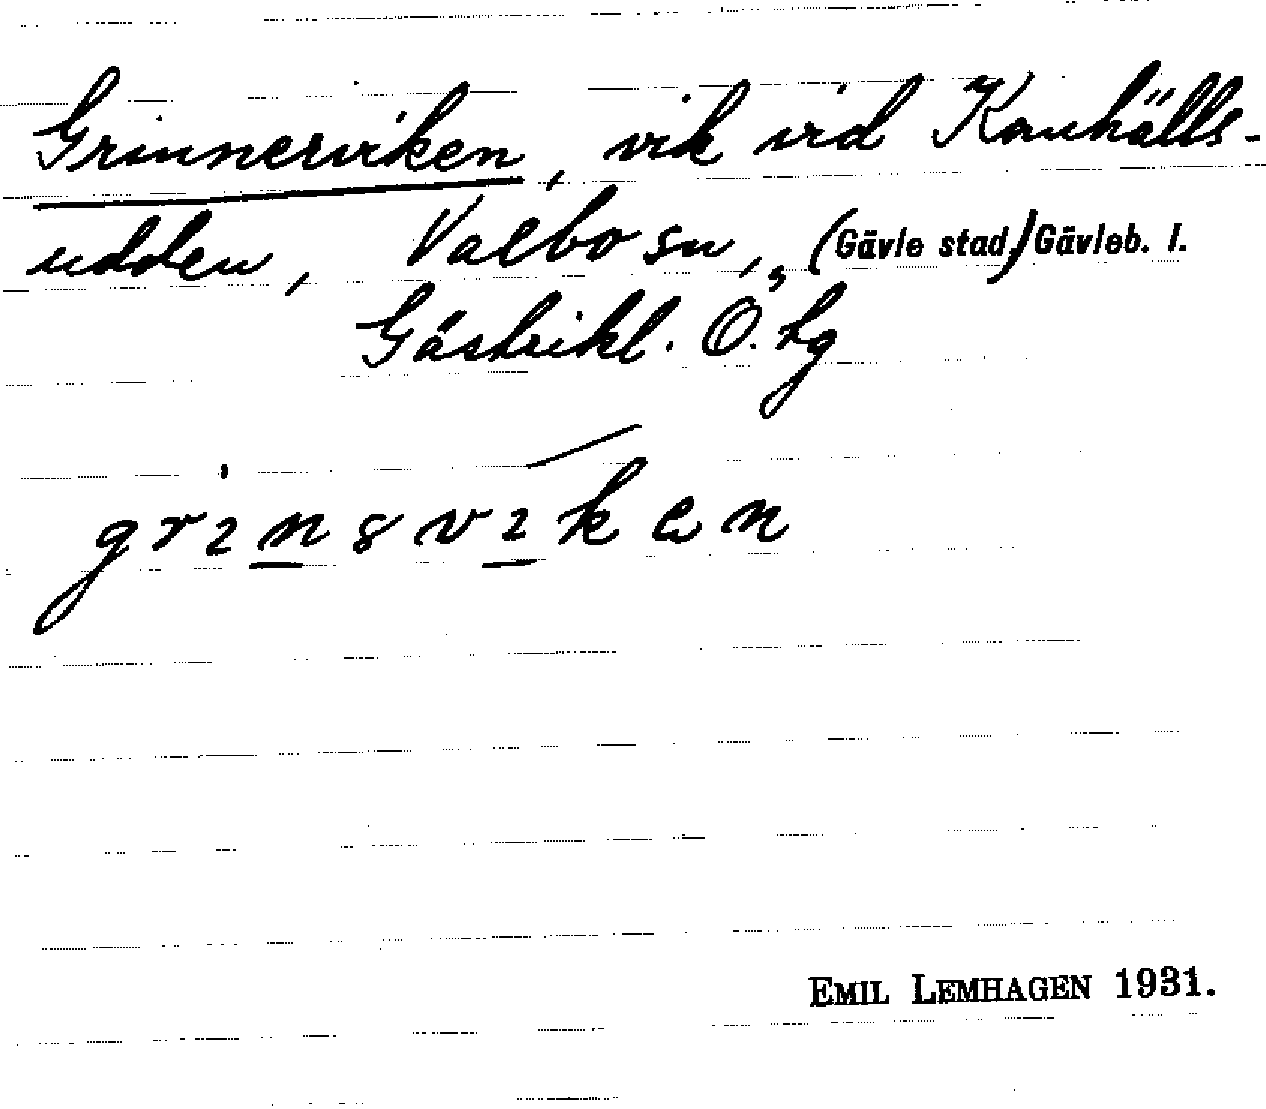 Grinnerviken, vik vid Kauhälls-
udden, Valbo sn, (Gävle stad,) Gävleb. l.
Gästrikl. Ö. tg
grinsviken
EMIL LEMHAGEN 1931.